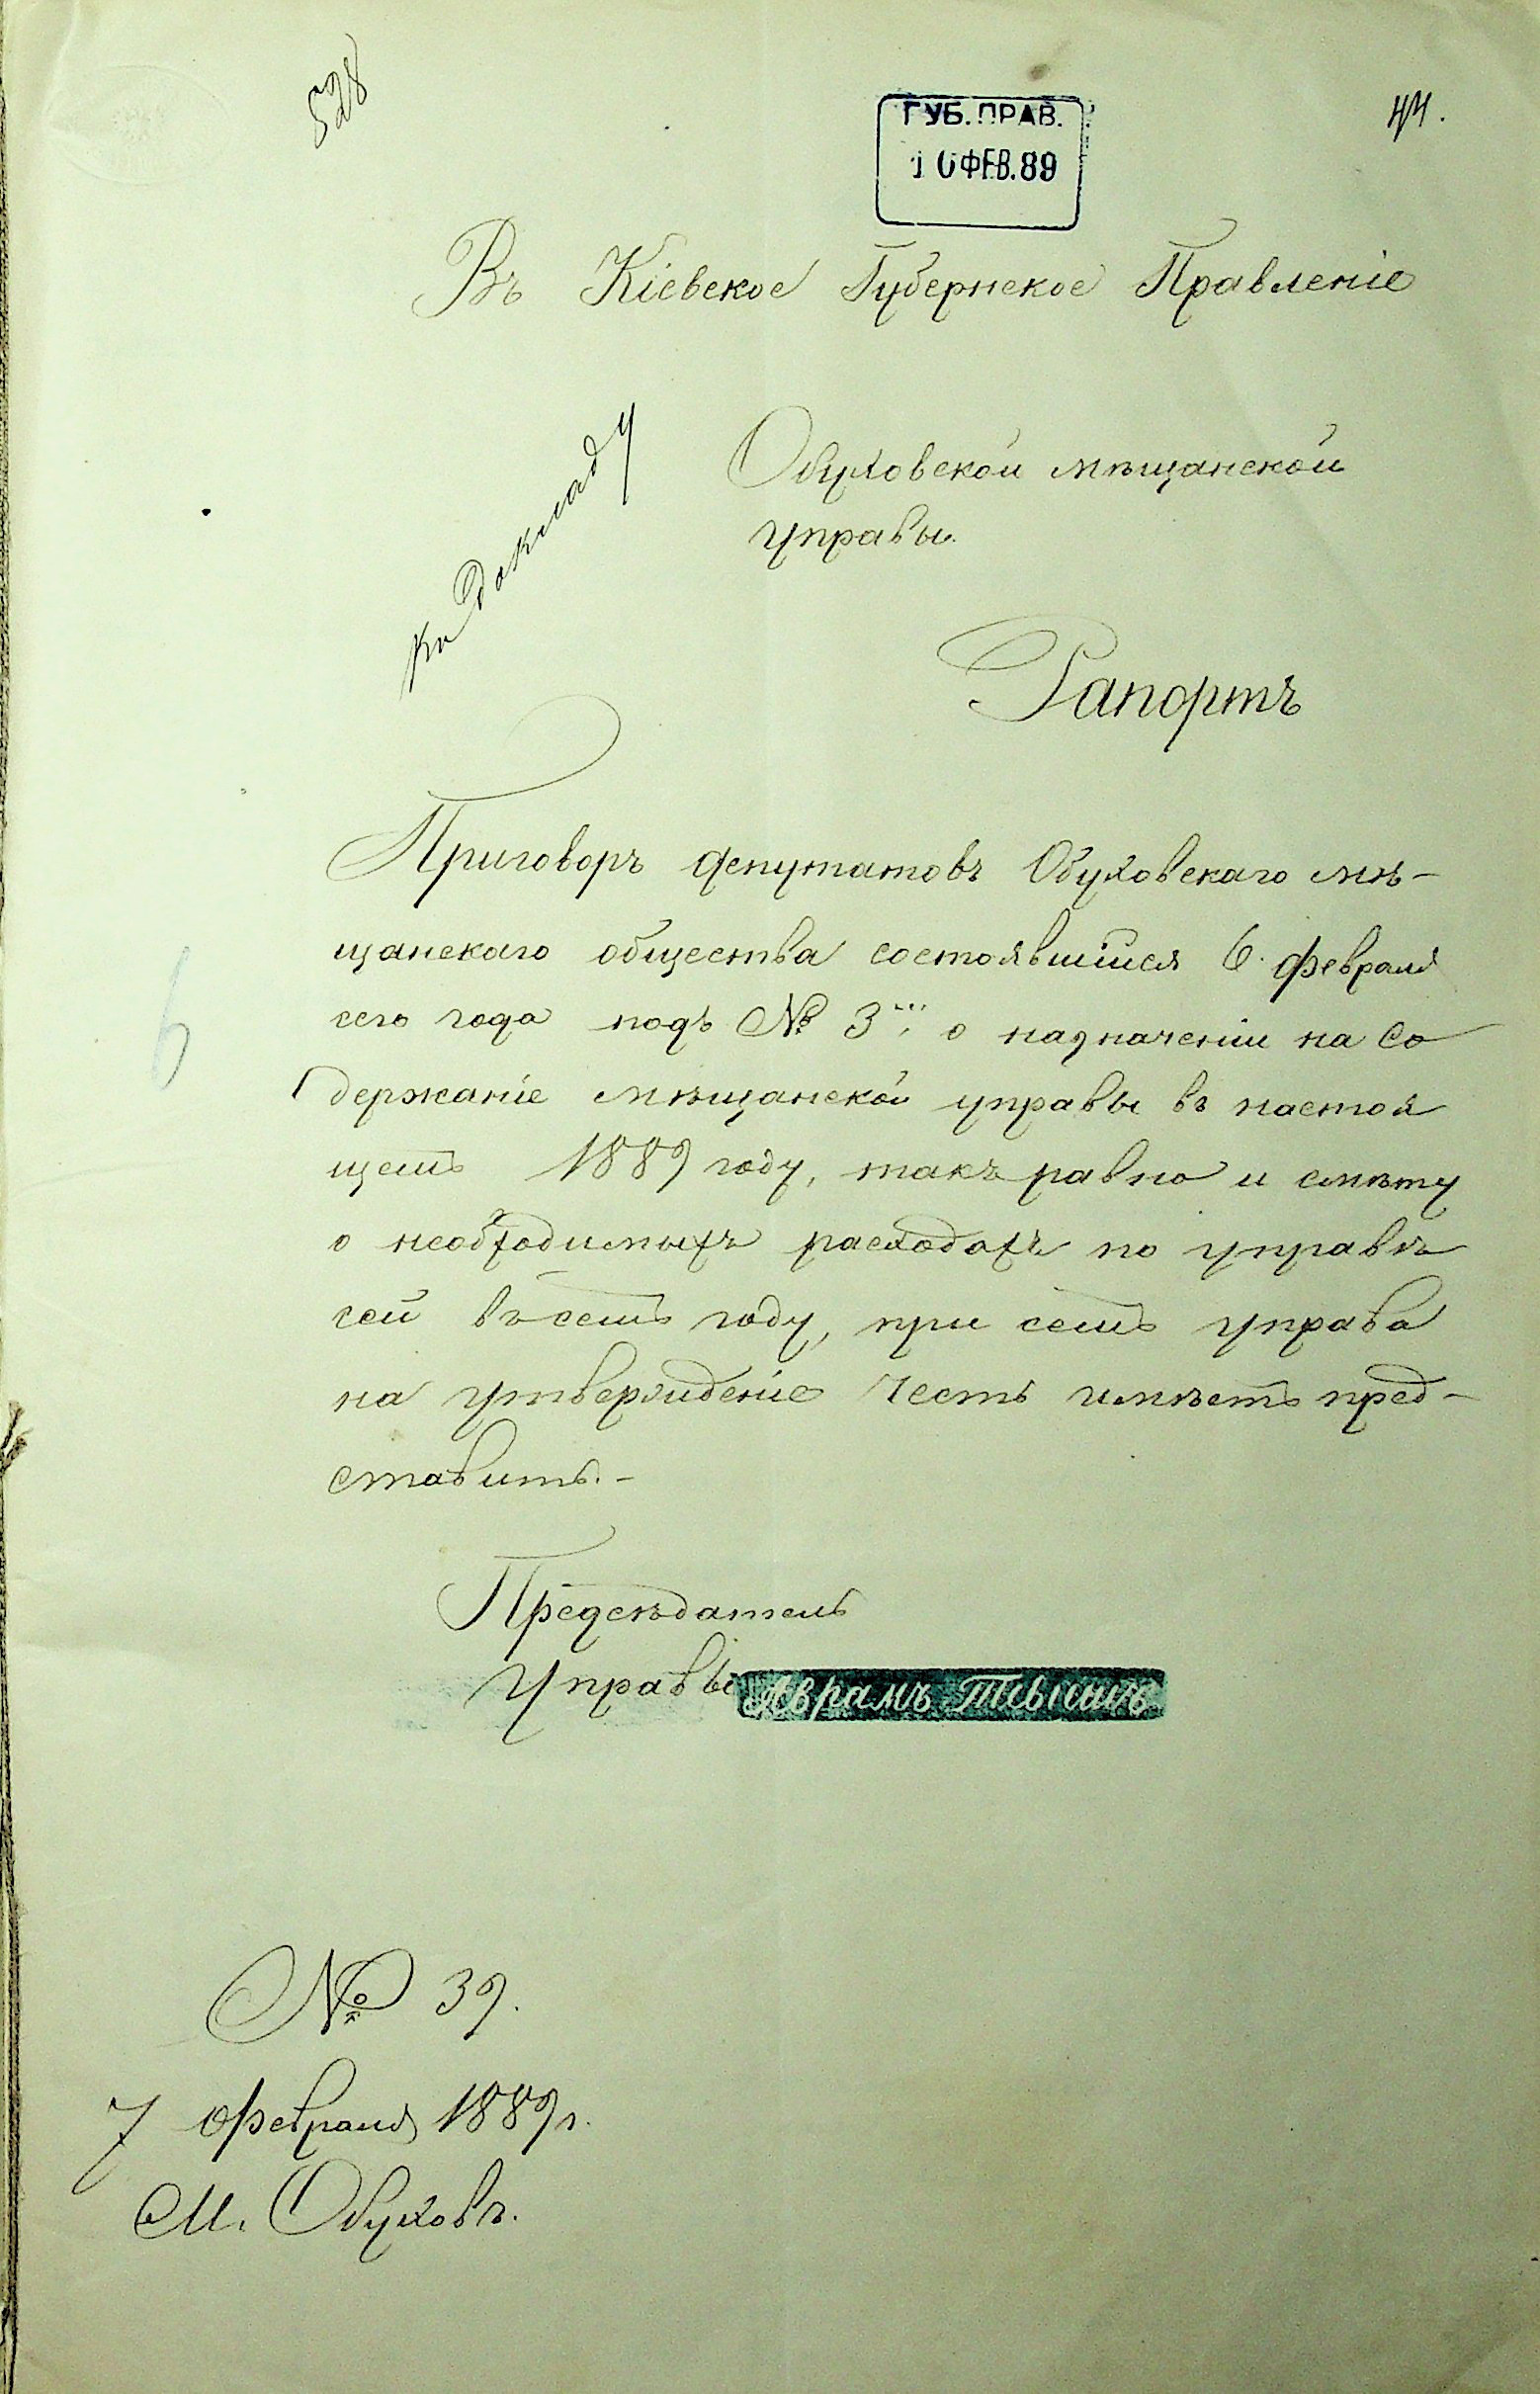 528
ГУБ. ПРАВ.
10 ФЕВ. 89
44.
Въ Кіевское Губернское Правленіе
Обуховской мѣщанской
управы.
къ докладу
Рапортъ
Приговоръ депутатовъ Обуховскаго мѣ-
щанскаго общества состоявшійся 6. февраля
сего года подъ № 3 о назначеніи на со
держаніе мѣщанской управы въ настоя
щемъ 1889 году, такъ равно и смѣту
о необходимыхъ расходахъ по управѣ
сей въ семъ году, при семъ управа
на утвержденіе честь имѣетъ пред-
ставить.-
6
Предсѣдатель
Управы Аврамъ
№ 39.
7 февраля 1889 г.
М. Обуховъ.